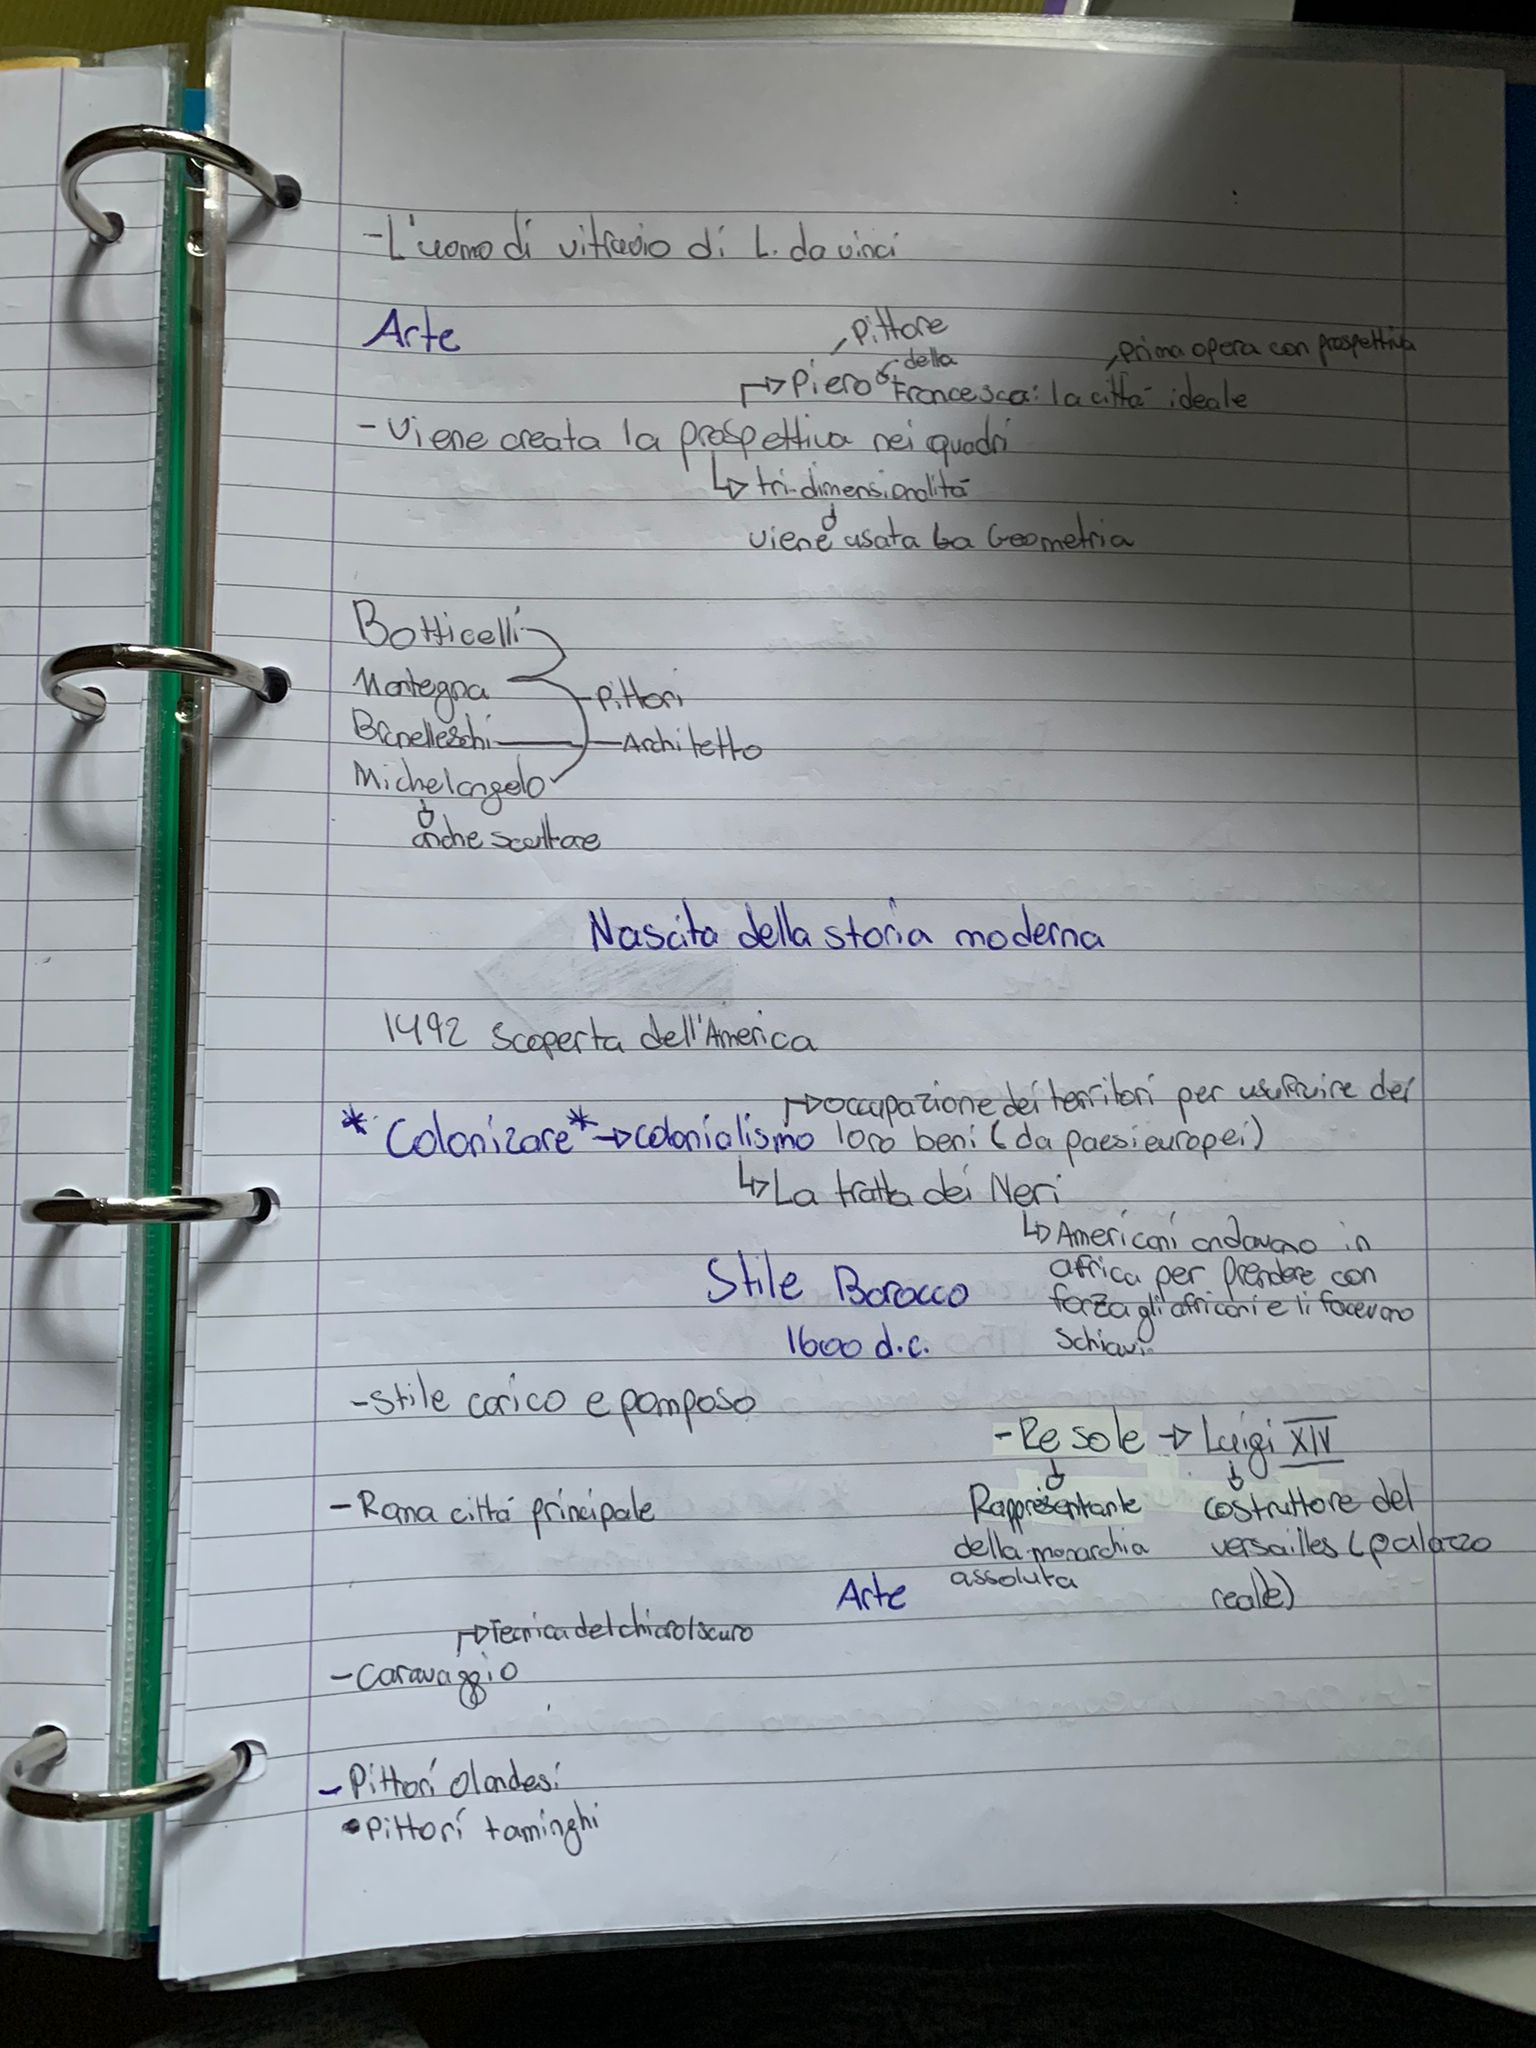 -L'uomo di vitruvio di L. da vinci
Arte
Pittore
della
prima opera con prospettiva
Piero Francesca: la città ideale
- Viene creata la prospettiva nei quadri
tri-dimensionalità
viene usata La Geometria
Botticelli
Mantegna
Pittori
Brunelleschi
Architetto
Michelangelo
anche scultore
Nascita della storia moderna
1492 scoperta dell'America
occupazione dei territori per usufruire dei
*Colonizare* → colonialismo loro beni (da paesi europei)
La tratta dei Neri
Americani andavano in
africa per prendere con
forza gli africani e li facevano
schiavi
Stile Barocco
1600 d.c.
-stile carico e pomposo
-Re sole → Luigi XIV
-Roma città principale
Rappresentante
della monarchia
assoluta
costruttore del
versailles (palazzo
reale)
Arte
Tecnica del chiaro/scuro
-Caravaggio
-Pittori olandesi
•Pittori taminghi